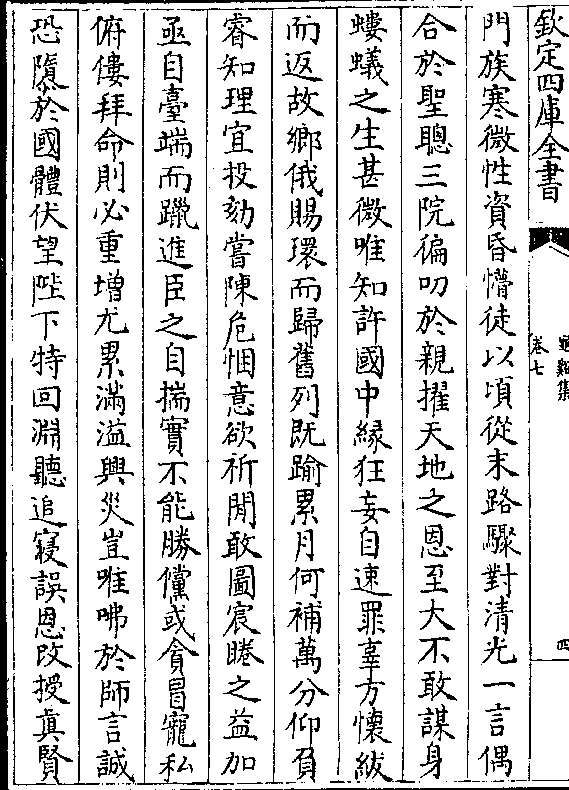 欽定四庫全書
龜谿集
卷七
四
門族寒微性資昏懵徒以頃從末路驟對清光一言偶
合於聖聰三院徧叨於親擢天地之恩至大不敢謀身
螻蟻之生甚微唯知許國中緣狂妄自速罪辜方懷紱
而返故鄉俄賜環而歸舊列既踰累月何補萬分仰負
睿知理宜投劾嘗陳危悃意欲祈閒敢圖宸睠之益加
亟自臺端而躐進臣之自揣實不能勝儻或貪冒寵私
俯僂拜命則必重增尤累滿溢興災豈唯咈於師言誠
恐隳於國體伏望陛下特回淵聽追寢誤恩改授真賢